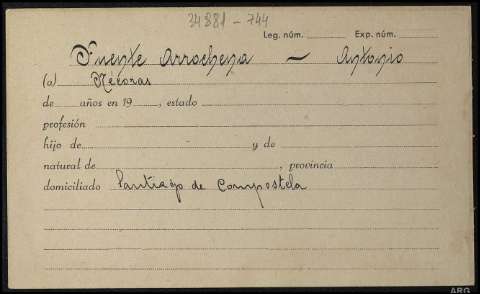 34881-744
Leg. núm. Exp. núm.
Fuente Arrochena - Antonio
(a)
de años en 19 , estado
profesión
hijo de y de
natural de , provincia
domiciliado Santiago de Compostela
ARG